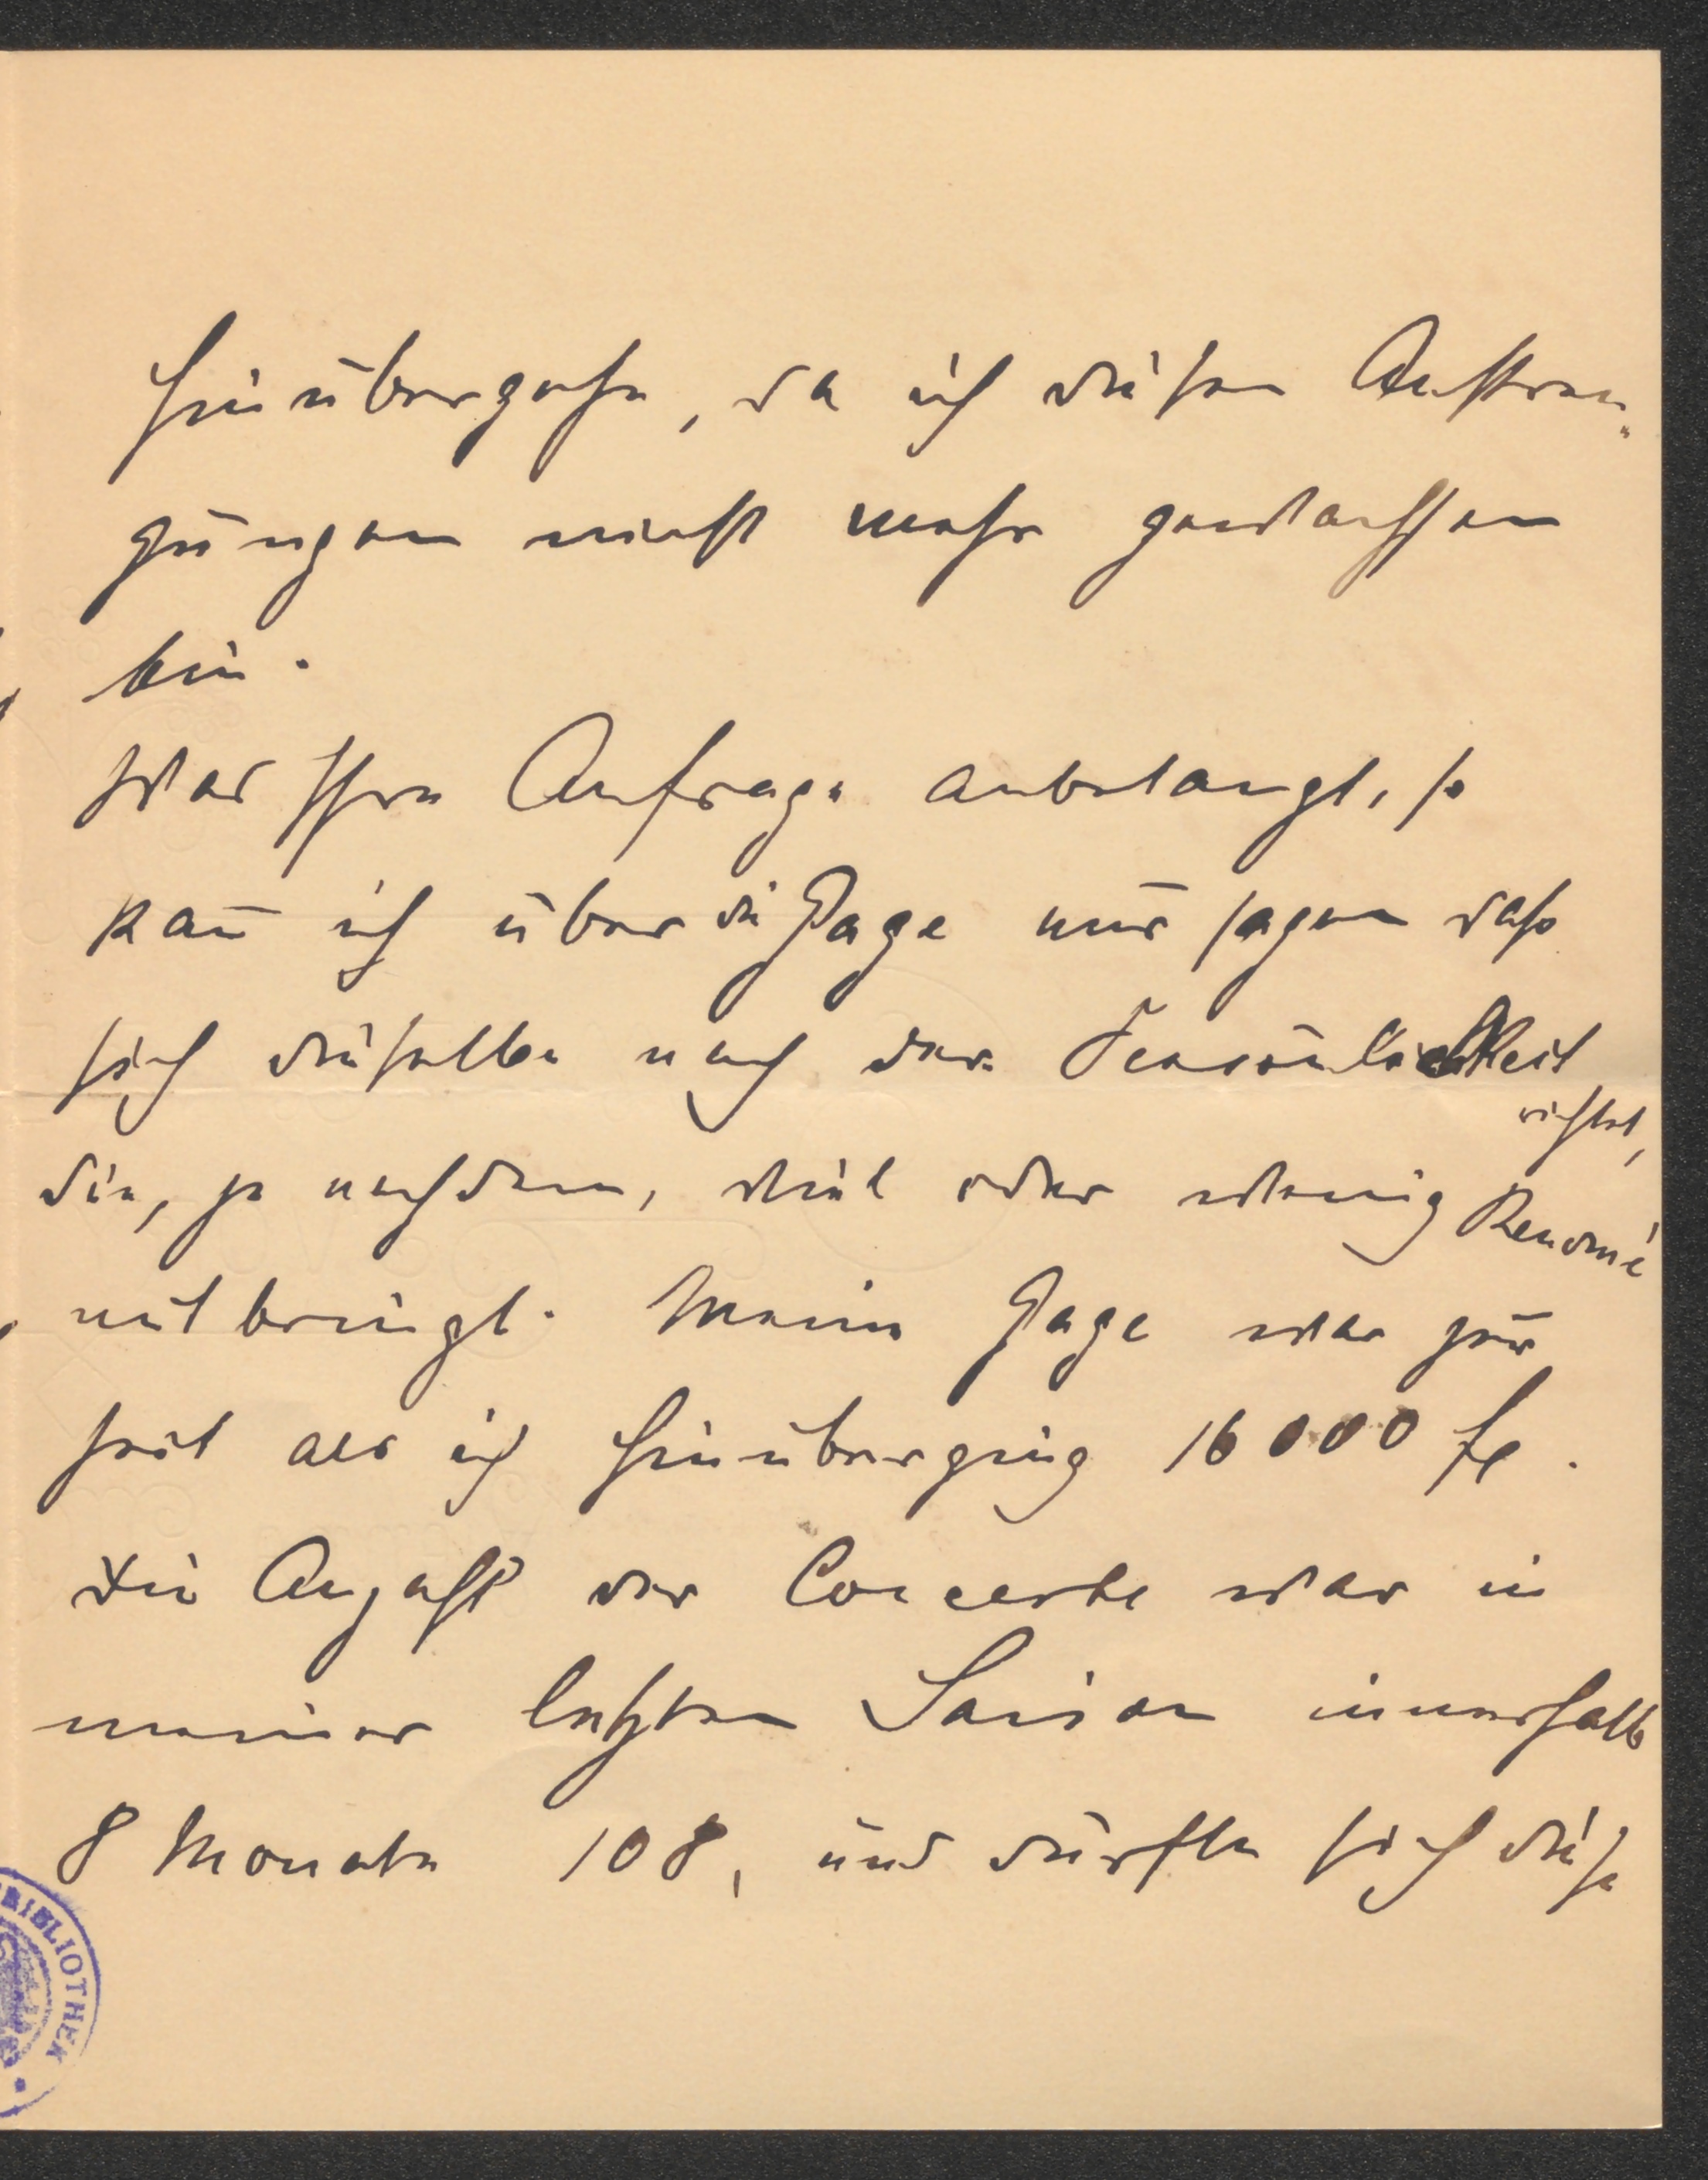 hinübergehe, da ich diesen Anstren„
gungen nicht mehr gewachsen
bin.
Was Ihre Anfrage anbelangt, so
kan̄ ich über die Gage nur sagen daß
sich dieselbe nach der Persönlichkeit
richtet,
die, je nachdem, viel oder wenig Renomé
mitbringt. Meine Gage war zur
Zeit als ich hinüberging 16000 fl.
Die Anzahl der Concerte war in
meiner letzten Saison innerhalb
8 Monate 108, und dürfte sich diese
BIBLIOTHEK